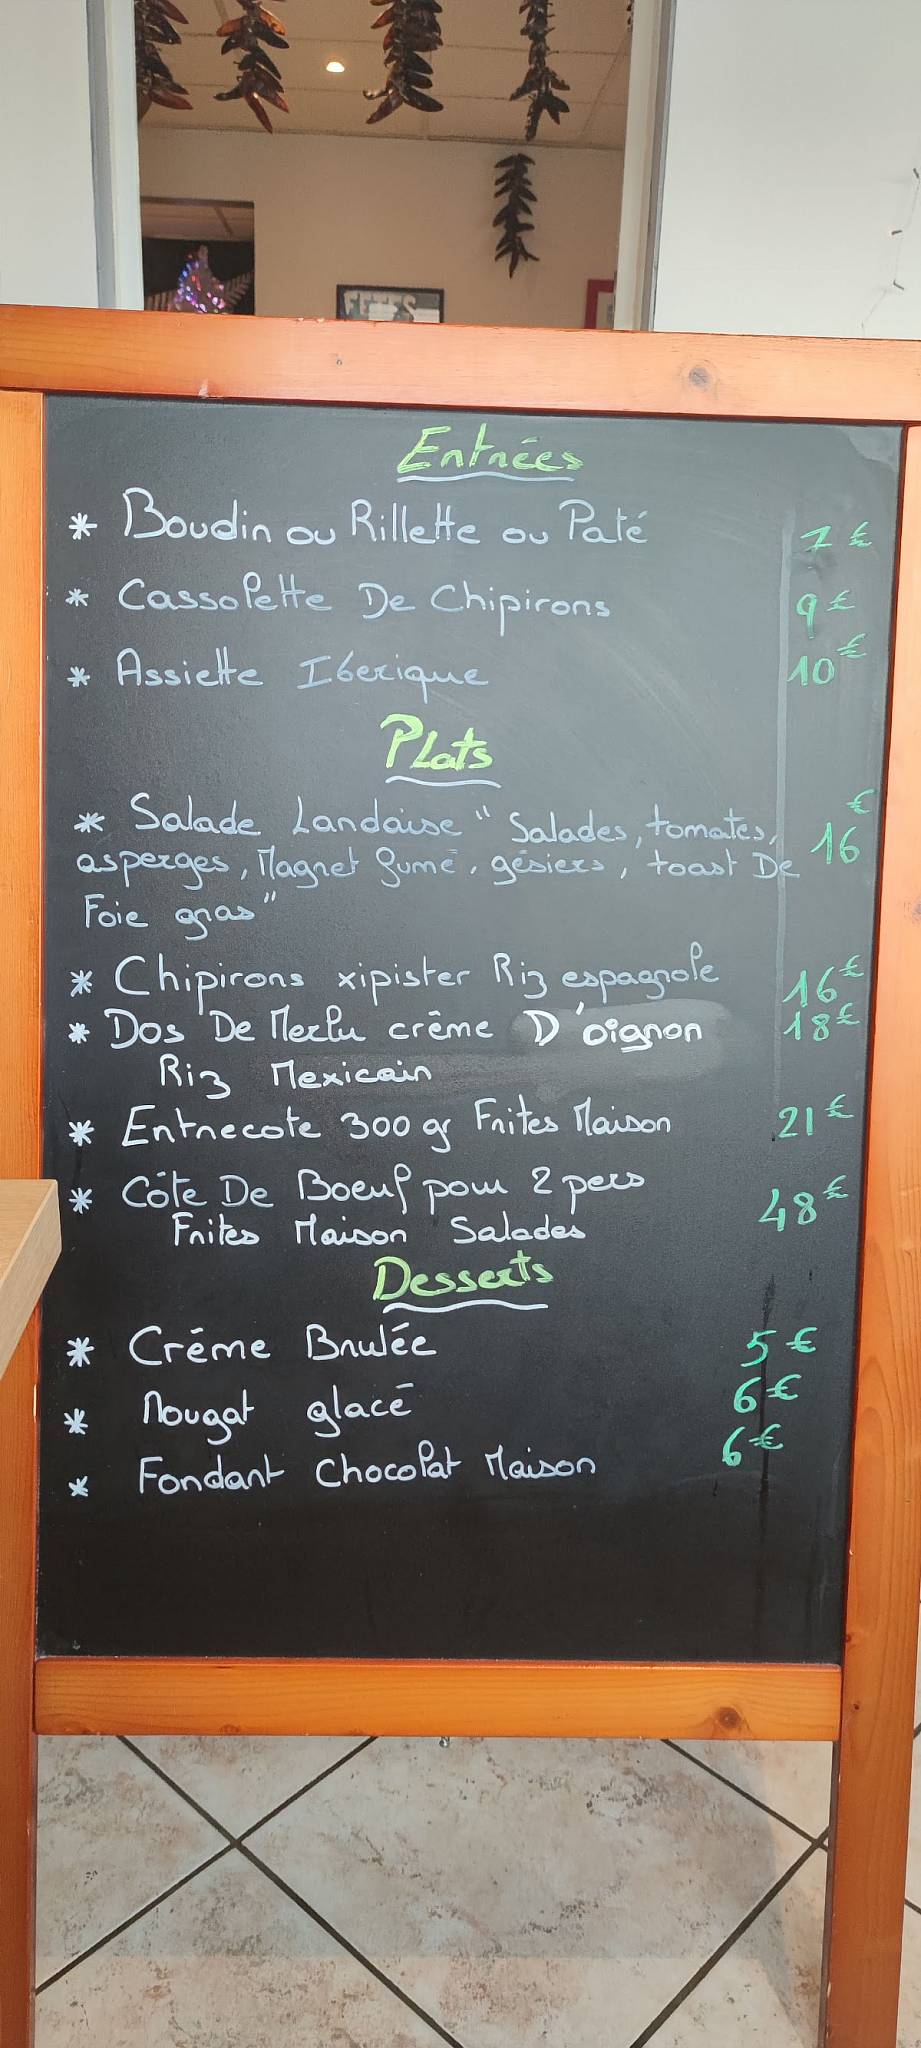 FETES
Entrées
* Boudin ou Rillette ou Paté 7 €
* Cassolette De Chipirons 9 €
* Assiette Iberique 10 €
Plats
* Salade Landaise " Salades, tomates, 16 €
asperges, Magret fumé, gésiers, toast De
Foie gras"
* Chipirons xipister Riz espagnole 16 €
* Dos De Merlu crême D'oignon 18 €
Riz Mexicain
* Entrecote 300 gr Frites Maison 21 €
* Côte De Boeuf pour 2 pers 48 €
Frites Maison Salades
Desserts
* Créme Brulée 5 €
* Nougat glacé 6 €
* Fondant Chocolat Maison 6 €